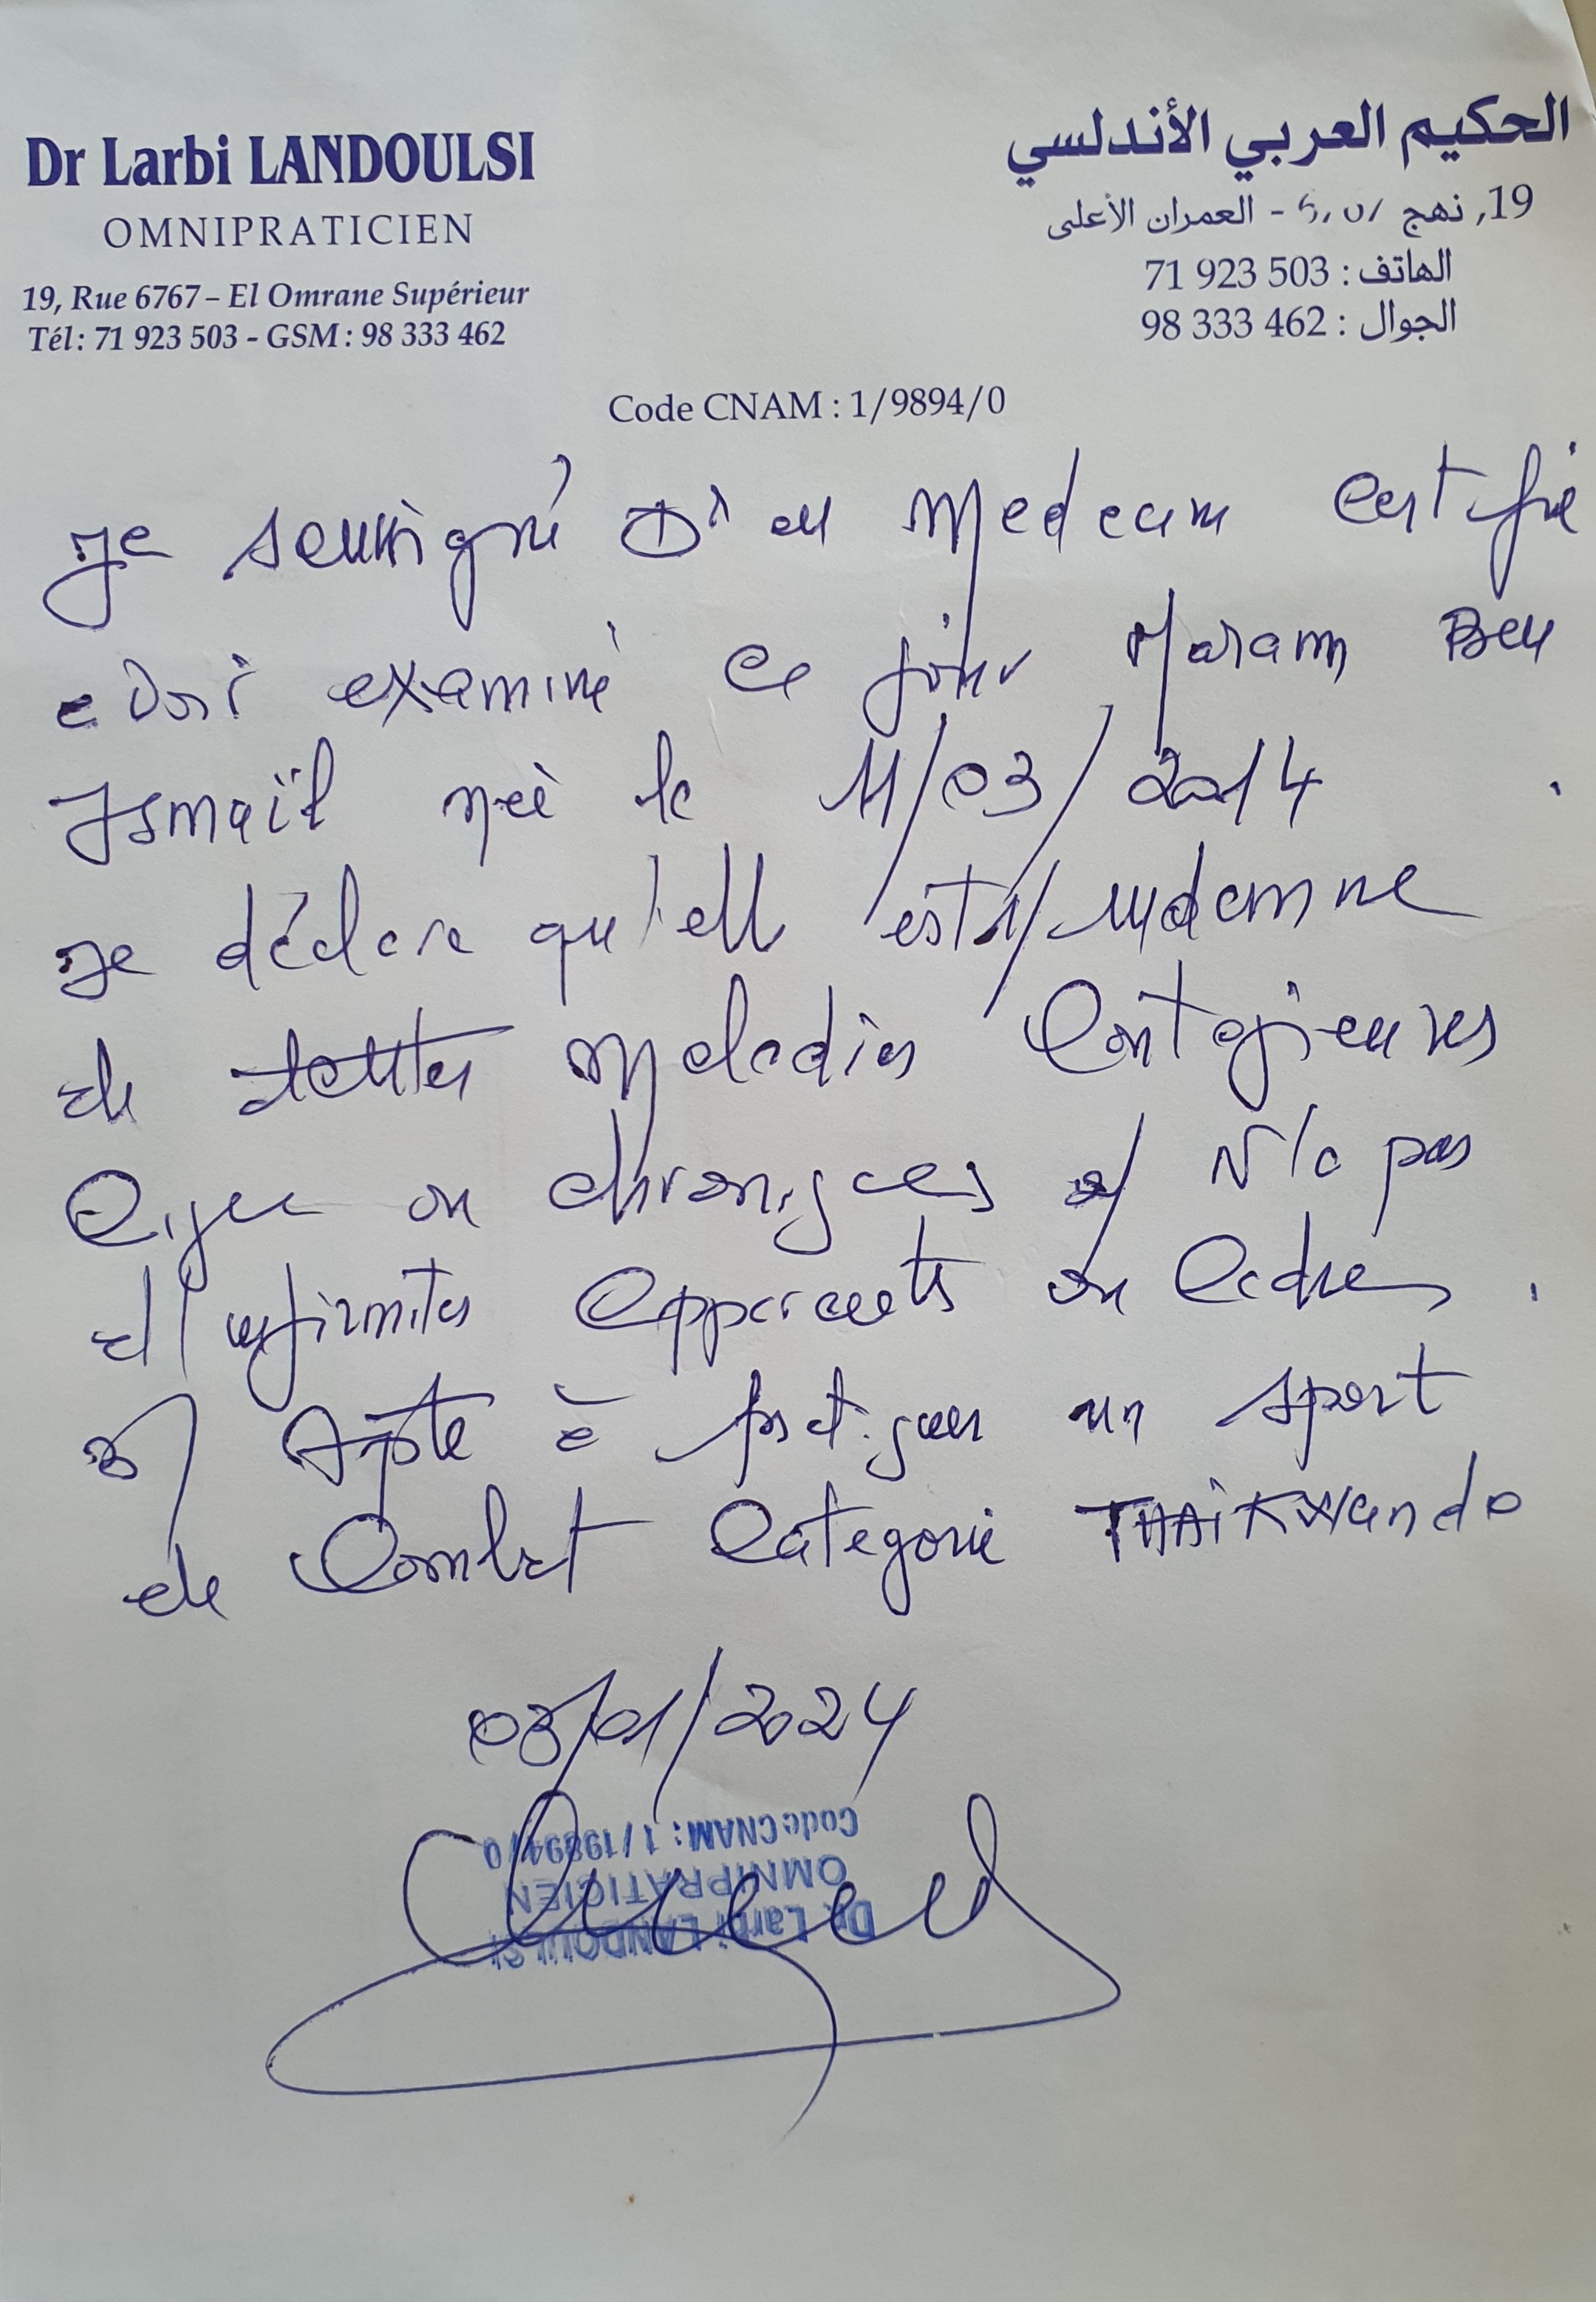 Dr Larbi LANDOULSI
OMNIPRATICIEN
19, Rue 6767 – El Omrane Supérieur
Tél : 71 923 503 - GSM : 98 333 462
الحكيم العربي الأندلسي
19, نهج - العمران الأعلى
الهاتف : 71 923 503
الجوال : 98 333 462
Code CNAM : 1/9894/0
Je soussigné Dr en Medecine Certifie
avoir examiné ce jour Maram Ben
Ismaïl née le 11/03/2014
Je déclare qu'elle est indemne
de toutes maladies Contagieuses
Aigue ou chroniques et N'a pas
d'infirmites apparents ou Cachées
et Apte à pratiquer un sport
de Combat Categorie THAiKWando
03/01/2024
Dr. Larbi LANDOULSI
OMNIPRATICIEN
Code CNAM : 1/19894/0